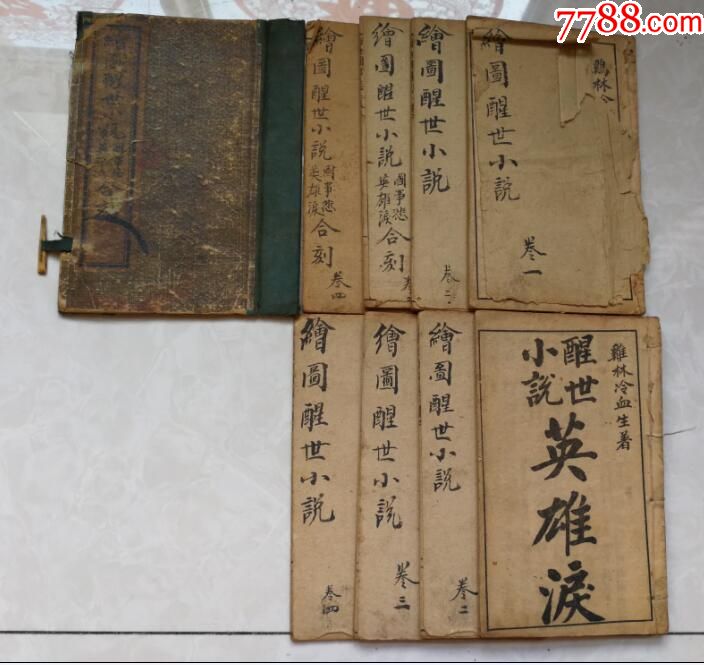 7788.com
繪圖醒世小說
國事悲
英雄淚
合刻
繪圖醒世小說
國事悲
英雄淚
合刻
卷四
繪圖醒世小說
國事悲
英雄淚
合刻
繪圖醒世小說
卷二
繪圖醒世小說
卷一
鷄林冷
繪圖醒世小說
卷四
繪圖醒世小說
卷三
繪圖醒世小說
卷二
雞林冷血生著
醒世
小說
英雄淚